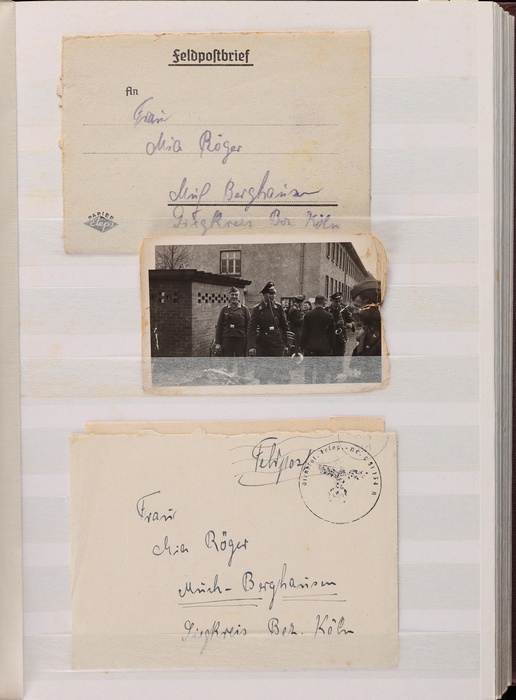 Feldpostbrief
An
Frau
Mia Röger
Much Berghausen
Siegkreis Bez. Köln
PAPIER
Feldpost
Frau
Mia Röger
Much-Berghausen
Siegkreis Bez. Köln